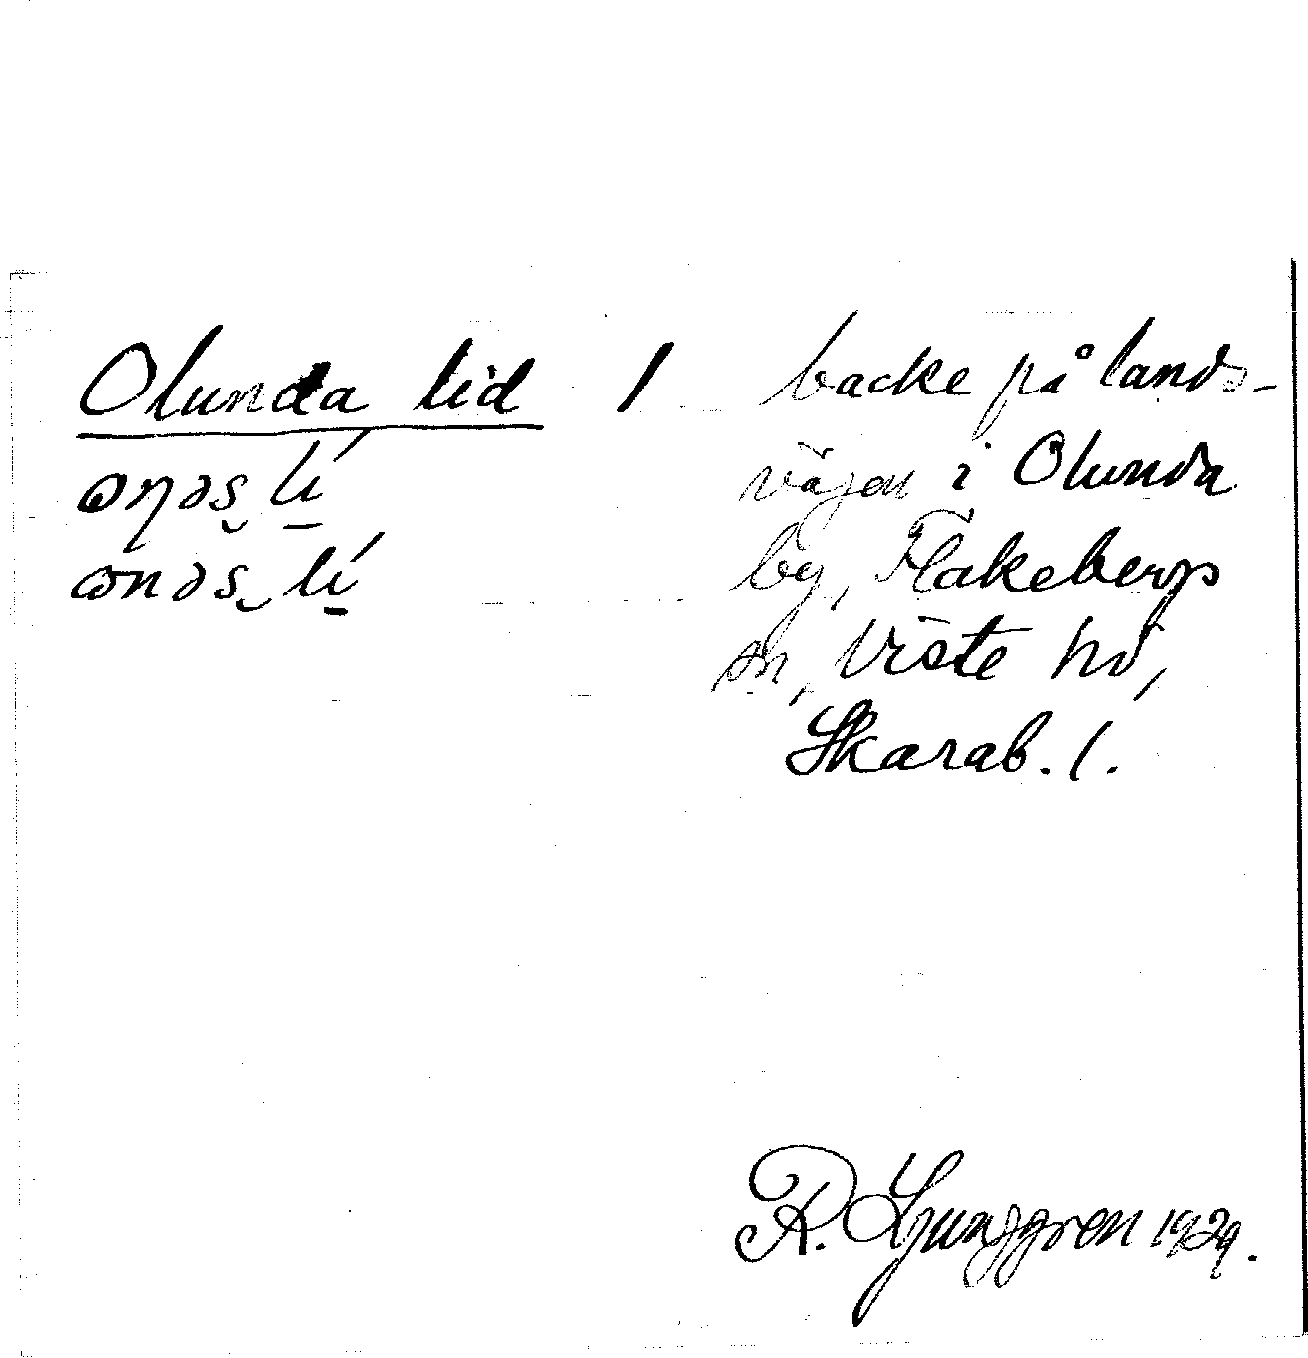 Olunda lid 1 backe på lands-
vägen i Olunda
by, Flakebergs
sn, Viste hd,
Skarab. l.
R. Ljunggren 1929.